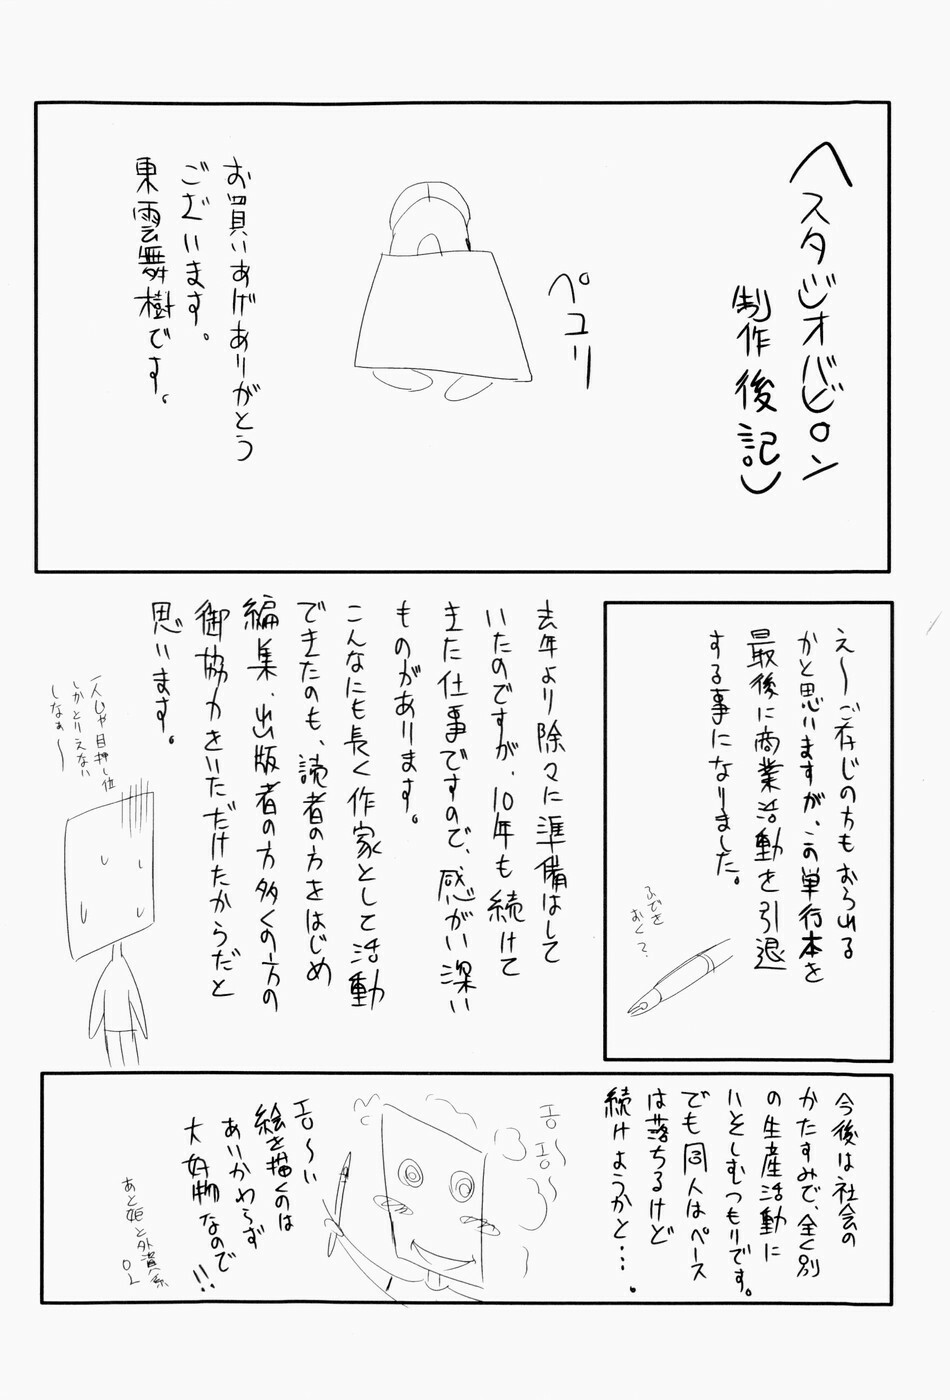 へスタジオバビロン
制作後記し
ペコリ
お買いあげありがとう
ございます。
東雲舞樹です。
え〜ご存じの方もおられる
かと思いますが、この単行本を
最後に商業活動を引退
する事になりました。
ふでを
おく?
去年より除々に準備はして
いたのですが、10年も続けて
きた仕事ですので、感がい深い
ものがあります。
こんなにも長く作家として活動
できたのも、読者の方をはじめ
編集、出版者の方多くの方の
御協力をいただけたからだと
思います。
一人じゃ目押し位
しかとりえない
しなぁ〜
今後は社会の
かたすみで、全く別
の生産活動に
いそしむつもりです。
でも同人はペース
は落ちるけど
続けようかと・・・。
エロ〜
エロ〜い
絵を描くのは
あいかわらず
大好物なので
!!
あと姫と外資系
OL